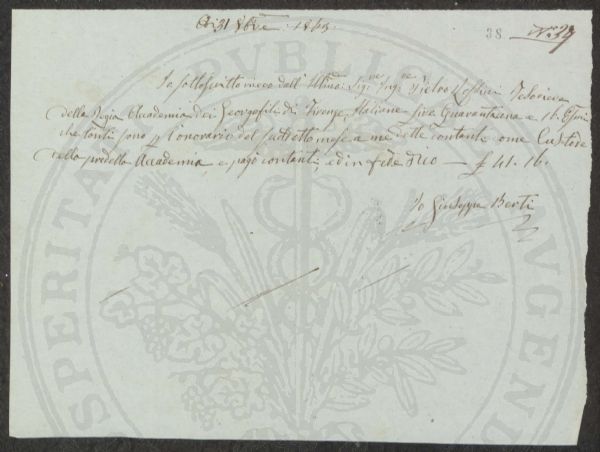 A dì 31 8bre 1863.
38 N° 39
Io sottoscritto ricevo dall' Illmo Sigre Ingre Pietro Tesoriere
della Regia Accademia dei Georgofili di Firenze, Italiane Lire Quarantuna e 16. Cmi
che tanti sono p l'onorario del suddetto mese a me dette contante come Custode
della predetta Accademia, e pagò contanti, ed in fede dico — £ 41. 16.
Io Giuseppe Berti
PROSPERITATI PUBLICAE AUGENDAE